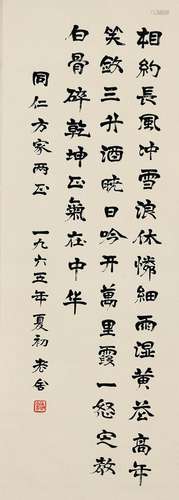 相約長風冲雪浪休憐細雨湿黄花高年
笑斂三升酒晓日吟开萬里霞一怒定教
白骨碎乾坤正氣在中华
同仁方家两正
一九六五年夏初 老舍